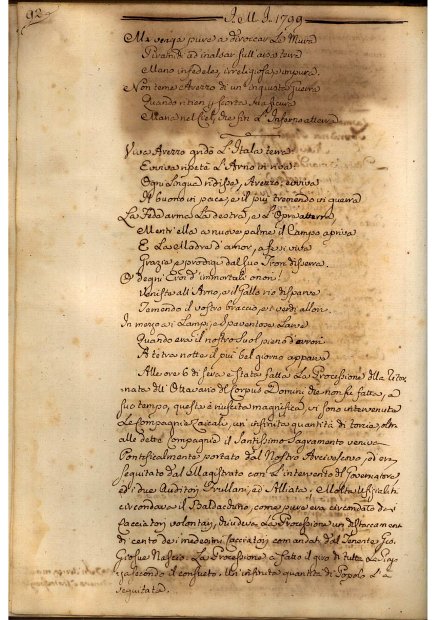 92.
A. M. D. 1799
Ma venga pure a diroccar le Mura
Tirannide ad inalzar sull' arsa terra
Mano infedele, irreligiosa, impura.
Non teme Arezzo di un' ingiusta guerra
Quando ritien per scorta sua sicura
Mano nel Ciel, che fin l'Inferno atterra
Viva Arezzo gridò l'Itala terra
Evviva ripetè l'Arno in riva
Ogni lingua ridisse, Arezzo, evviva
Il buono in pace, e il più tremendo in guerra
La Fede arma la destra, e l'Opra atterra
Mentr' ella a nuove palme il Campo apriva
E la Madre d'amor, a fe' viva
Grazie, e prodigi dal suo Tron disserra.
O degni Eroi d'immortali onori!
Veniste all' Arno, e il Gallo rio disparve
Temendo il vostro braccio, e i verdi allori.
In mezzo ai Lampi, e spaventose Larve
Quando era il nostro suol pieno d'errori
A tetra notte il più bel giorno apparve
Alle ore 6 di sera è stata fatta la Processione della Ritor-
nata dell' Ottavario del Corpus Domini che non fu fatta, a
suo tempo, questa è riuscita magnifica, vi sono intervenute
le Compagnie Laicali, un' infinita quantità di torcie, oltre
alle dette Compagnie il Santissimo Sagramento veniva
Pontificalmente portato dal Nostro Arcivescovo, ed era
seguitato dal Magistrato con l'intervento del Governatore,
e i due Auditori Brullani, ed Alliata. Molti Ufiziali
circondavano il Baldacchino, come pure era circondato da
Cacciatori volontarj, chiudeva la Processione un distaccamento
di cento dei medesimi Cacciatori comandati dal Tenente Gio.
Giosue Nascio. La Processione à fatto il giro di tutta la Piaz-
za secondo il consueto. Un' infinita quantità di Popolo l' à
seguitata.